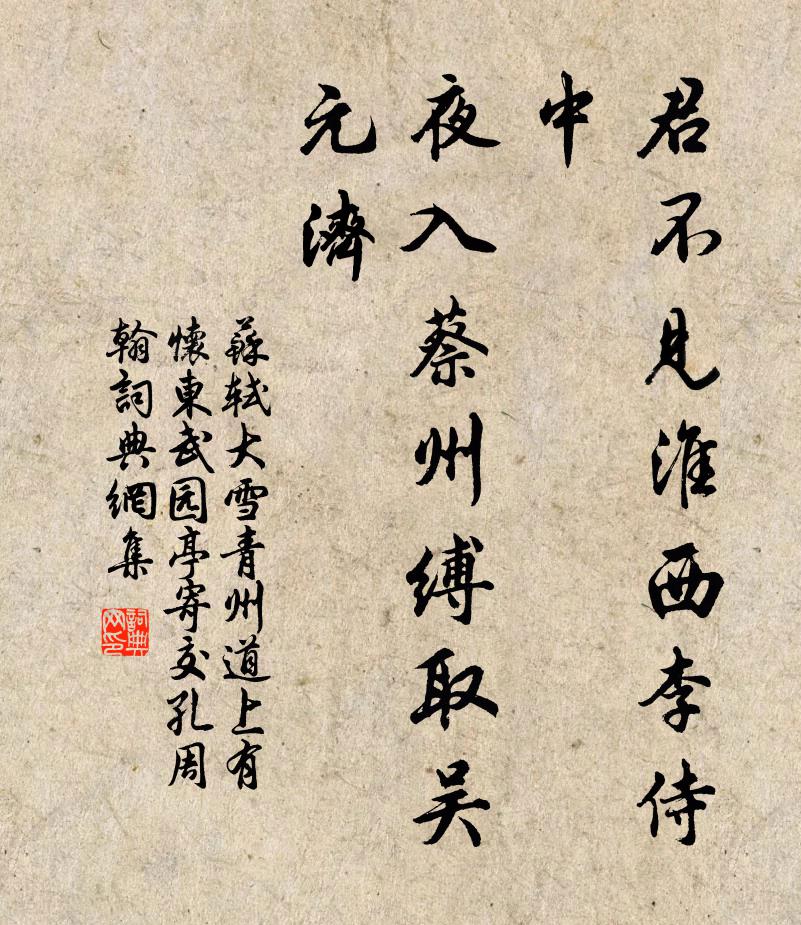 君不見淮西李侍
中
夜入蔡州縛取吴
元濟
蘇軾大雪青州道上有
懷東武园亭寄交孔周
翰詞典網集
詞典
网印